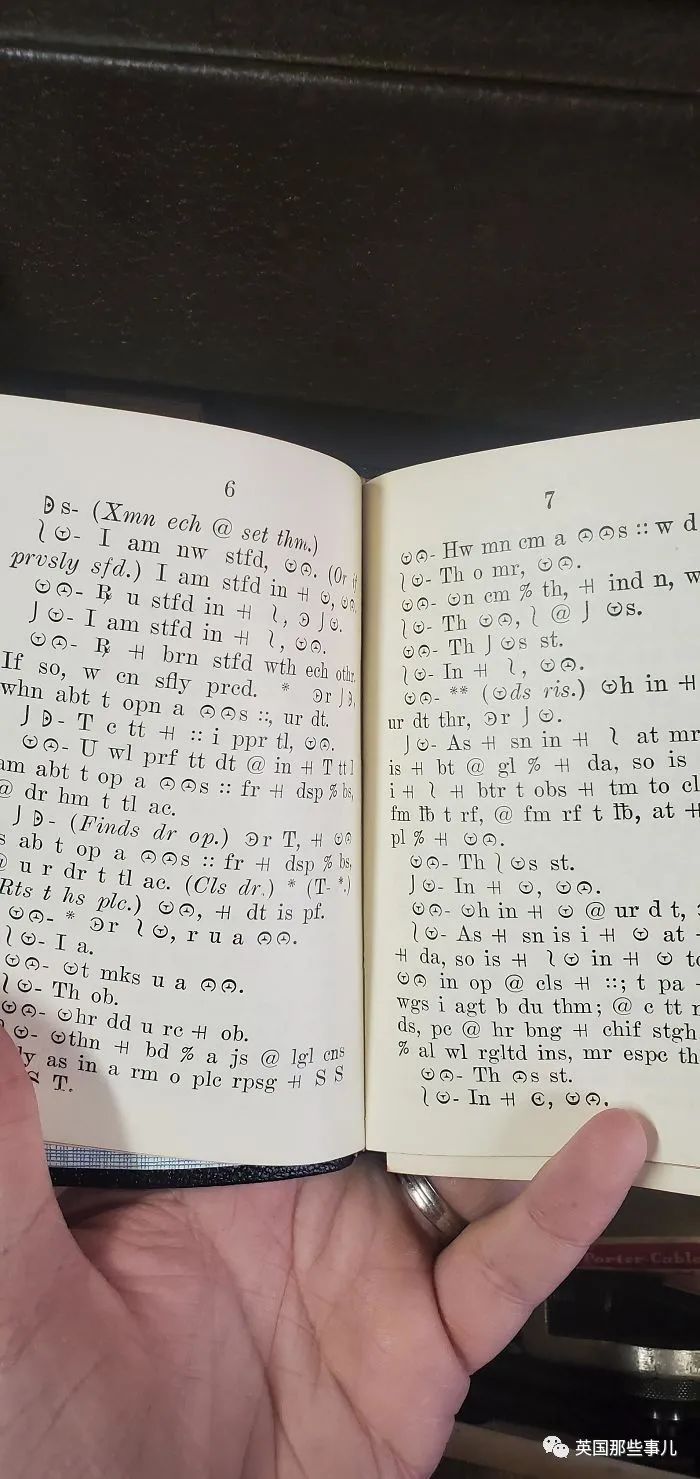 6
s- (Xmn ech @ set thm.)
ʅ ⊙- I am nw stfd, ⊙⊙. (Or if
prvsly sfd.) I am stfd in 卄 ⊙, ⊙⊙.
⊙⊙- ℞ u stfd in 卄 ʅ, J ⊙.
J ⊙- I am stfd in 卄 ʅ, ⊙⊙.
⊙⊙- ℞ 卄 brn stfd wth ech othr.
If so, w cn sfly prcd. * r J
whn abt t opn a ⊙⊙s ::, ur dt.
J - T c tt 卄 :: i ppr tl, ⊙⊙.
⊙⊙- U wl prf tt dt @ in 卄 T tt I
am abt t op a ⊙⊙s :: fr 卄 dsp % bs,
@ dr hm t tl ac.
J - (Finds dr op.) r T, 卄 ⊙⊙
s ab t op a ⊙⊙s :: fr 卄 dsp % bs,
@ u r dr t tl ac. (Cls dr.) * (T- *.)
Rts t hs plc.) ⊙⊙, 卄 dt is pf.
⊙⊙- * r ʅ ⊙, r u a ⊙⊙.
ʅ ⊙- I a.
⊙⊙- ⊙t mks u a ⊙⊙.
ʅ ⊙- Th ob.
⊙⊙- ⊙hr dd u rc 卄 ob.
⊙- ⊙thn 卄 bd % a js @ lgl cns
as in a rm o plc rpsg 卄 S S
S T.
7
⊙⊙- Hw mn cm a ⊙⊙s :: w d
ʅ ⊙- Th o mr, ⊙⊙.
⊙⊙- ⊙n cm % th, 卄 ind n, w
ʅ ⊙- Th ⊙⊙, ʅ @ J ⊙s.
⊙⊙- Th J ⊙s st.
ʅ ⊙- In 卄 ʅ, ⊙⊙.
⊙⊙- ** (⊙ds ris.) ⊙h in 卄
ur dt thr, r J ⊙.
J ⊙- As 卄 sn in 卄 ʅ at mr
is 卄 bt @ gl % 卄 da, so is
i 卄 ʅ 卄 btr t obs 卄 tm to cl
fm lb t rf, @ fm rf t lb, at 卄
pl % 卄 ⊙⊙.
⊙⊙- Th ʅ ⊙s st.
J ⊙- In 卄 ⊙, ⊙⊙.
⊙⊙- ⊙h in 卄 ⊙ @ ur d t,
ʅ ⊙- As 卄 sn is i 卄 ⊙ at
卄 da, so is 卄 ʅ ⊙ in 卄 ⊙ to
⊙⊙ in op @ cls 卄 ::; t pa
wgs i agt b du thm; @ c tt
ds, pc @ hr bng 卄 chif stgh
% al wl rgltd ins, mr espc th
⊙⊙- Th ⊙s st.
ʅ ⊙- In 卄 , ⊙⊙.
Porter-Cable
英国那些事儿